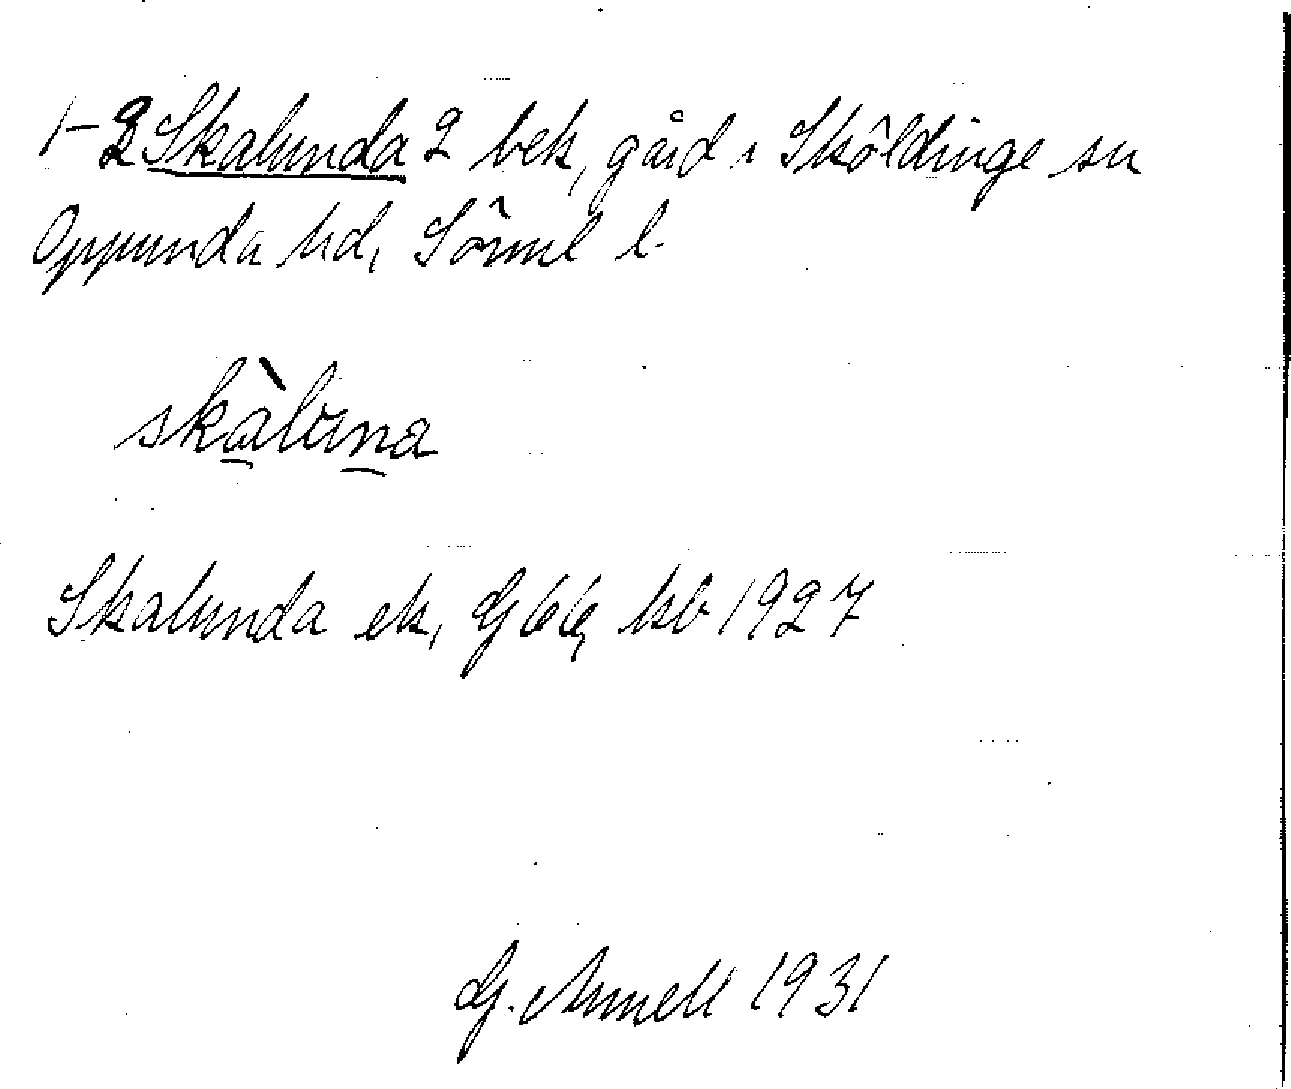 1-2 Skalunda 2 bek, gård i Sköldinge sn
Oppunda hd, Sörml l.
skàluna
Skalunda ek, G 66, kb 1927
G. Arnell 1931